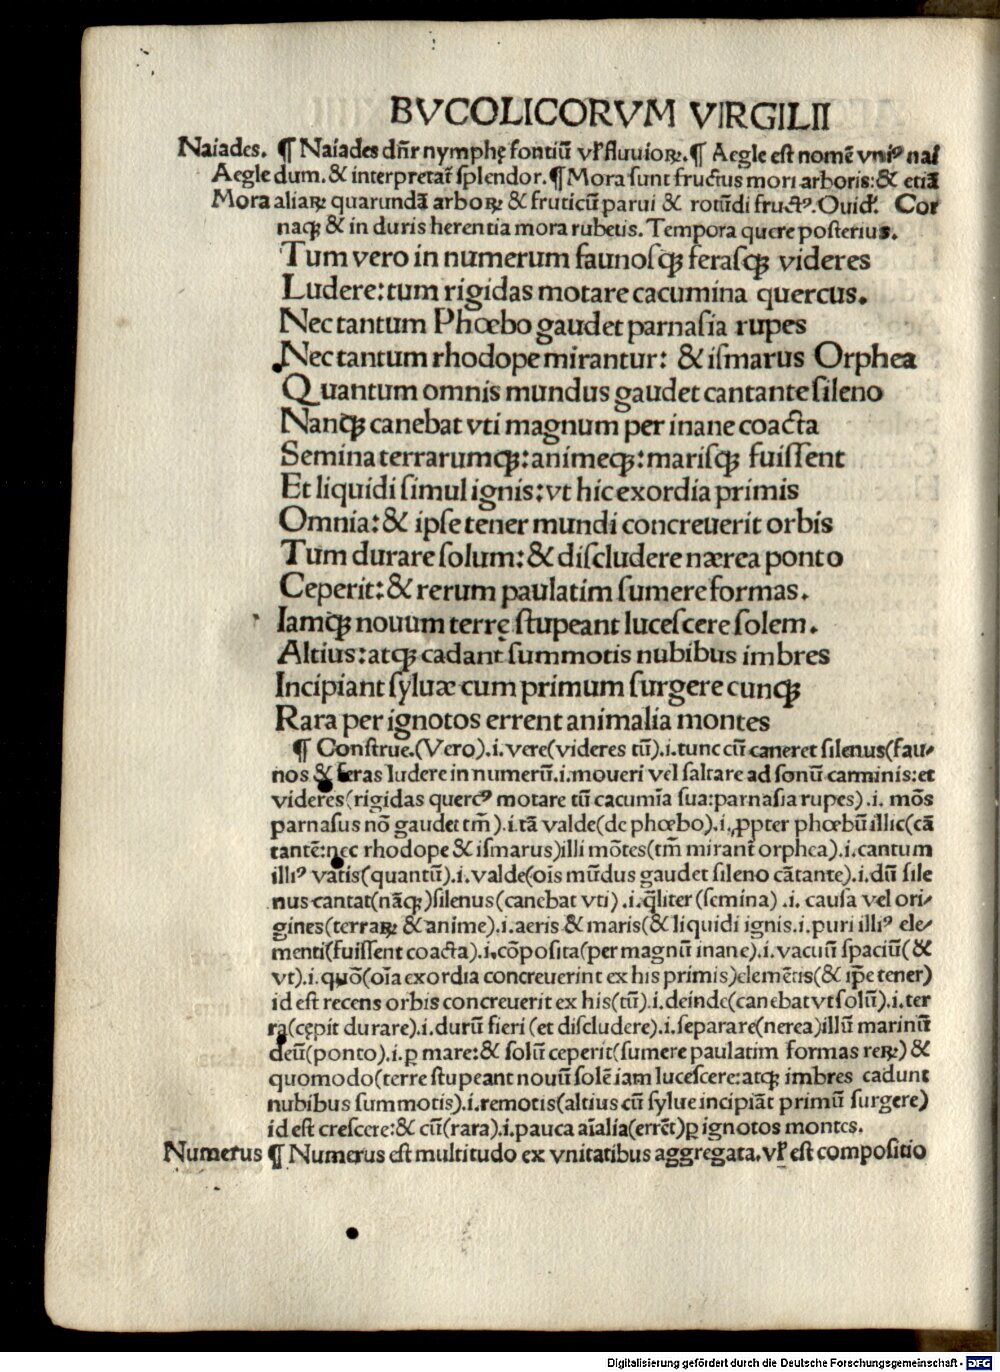 BVCOLICORVM VIRGILII
Naiades. ¶ Naiades dn̄r nymphę fontiū vƚ fluuioꝝ. ¶ Aegle est nomē vniꝰ nai
Aegle dum. & interpretat̄ splendor. ¶ Mora sunt fructus mori arboris: & etiā
Mora aliaꝝ quarundā arboꝝ & fruticū parui & rotūdi fructꝰ. Ouid̄. Cor
naqꝫ & in duris herentia mora rubetis. Tempora quere posterius.
Tum vero in numerum faunosqꝫ ferasqꝫ videres
Ludere: tum rigidas motare cacumina quercus.
Nec tantum Phœbo gaudet parnasia rupes
Nec tantum rhodope mirantur: & ismarus Orphea
Quantum omnis mundus gaudet cantante sileno
Nanqꝫ canebat vti magnum per inane coacta
Semina terrarumqꝫ: animeqꝫ: marisqꝫ fuissent
Et liquidi simul ignis: vt hic exordia primis
Omnia: & ipse tener mundi concreuerit orbis
Tum durare solum: & discludere nærea ponto
Ceperit: & rerum paulatim sumere formas.
Iamqꝫ nouum terrę stupeant lucescere solem.
Altius: atqꝫ cadant summotis nubibus imbres
Incipiant syluæ cum primum surgere cunqꝫ
Rara per ignotos errent animalia montes
¶ Construe. (Vero) .i. vere (videres tū) .i. tunc cū caneret silenus (fau⸗
nos & feras ludere in numerū .i. moueri vel saltare ad sonū carminis: et
videres (rigidas quercꝰ motare tū cacumīa sua: parnasia rupes) .i. mōs
parnasus nō gaudet tm̄) .i. tā valde (de phœbo) .i. ꝓpter phœbū illic (cā
tantē: nec rhodope & ismarus) illi mōtes (tm̄ mirant̄ orphea) .i. cantum
illiꝰ vatis (quantū) .i. valde (oīs mūdus gaudet sileno cātante) .i. dū sile
nus cantat (nāqꝫ) silenus (canebat vti) .i. q̄liter (semina) .i. causa vel ori⸗
gines (terraꝝ & anime) .i. aeris & maris (& liquidi ignis .i. puri illiꝰ ele⸗
menti (fuissent coacta) .i. cōposita (per magnū inane) .i. vacuū spaciū (&
vt) .i. quō (oīa exordia concreuerint ex his primis) elemētis (& ip̄e tener)
id est recens orbis concreuerit ex his (tū) .i. deinde (canebat vt solū) .i. ter
ra (cępit durare) .i. durū fieri (et discludere) .i. separare (nerea) illū marinū
deū (ponto) .i. ꝑ mare: & solū ceperit (sumere paulatim formas reꝝ) &
quomodo (terre stupeant nouū solē iam lucescere: atqꝫ imbres cadunt
nubibus summotis) .i. remotis (altius cū sylue incipiāt primū surgere)
id est crescere: & cū (rara) .i. pauca aīalia (errēt) ꝑ ignotos montes.
Numerus ¶ Numerus est multitudo ex vnitatibus aggregata. vƚ est compositio
Digitalisierung gefördert durch die Deutsche Forschungsgemeinschaft - DFG